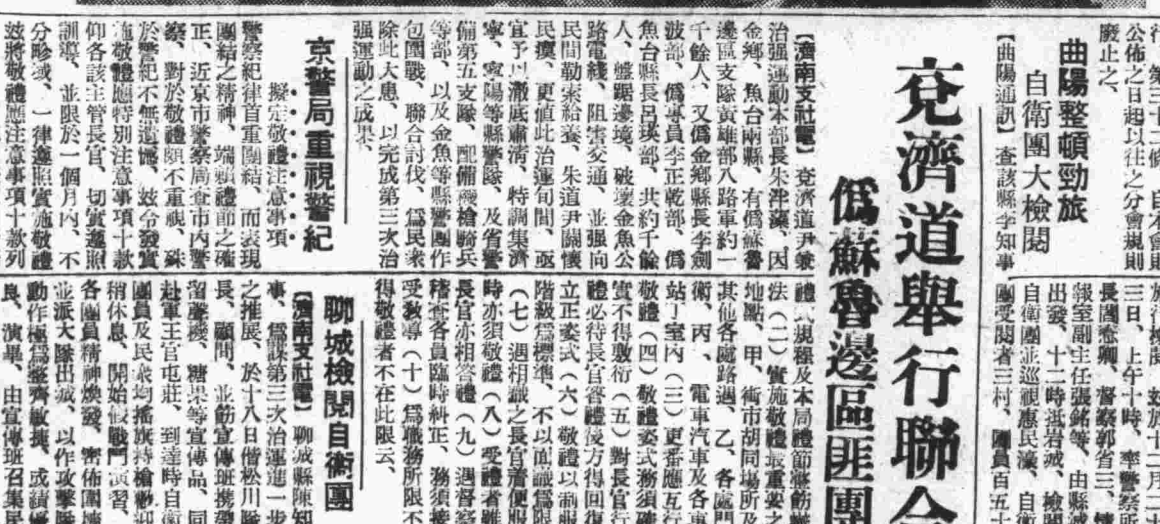 公佈之日起以往之分會規則
廢止之、
曲陽整頓勁旅
自衛團大檢閱
【曲陽通訊】查該縣李知事
三日、上午十時、率警察所
報室副主任張銘等、由縣城
出發、十二時抵君城、檢閱
自衛團並巡視惠民濠、自衛
團受閱者三村、團員百五十
兗濟道舉行聯合
僞蘇魯邊區匪團
【濟南支社電】兗濟道尹兼
治强運動本部長朱泮藻、因
金鄉、魚台兩縣、有僞蘇魯
邊區支隊黃雄部八路軍約一
千餘人、又僞金鄉縣長李劍
波部、僞專員李正乾部、僞
魚台縣長呂瑛部、共約千餘
人、盤踞邊境、破壞金魚公
路電綫、阻害交通、並强向
民間勒索給養、朱道尹關懷
民瘼、更值此治運旬間、亟
宜予以澈底肅清、特調集濟
寧、寧陽等縣警隊、及省警
備第五支隊、配備機槍騎兵
等部、以及金魚等縣警團作
包圍戰、聯合討伐、爲民衆
除此大患、以完成第三次治
强運動之成果、
京警局重視警紀
擬定敬禮注意事項
警察紀律首重團結、而表現
團結之精神、端賴禮節之確
正、近京市警察局查市內警
察、對於敬禮頗不重視、殊
於警紀不無遺憾、玆令發實
施敬禮應特別注意事項十款
仰各該主管長官、切實遵照
訓導、並限於一個月內、不
分畛域、一律遵照實施敬禮
玆將敬禮應注意事項十款列
禮式規程及本局禮節整飭
法（二）實施敬禮最重要之
地點、甲、街市胡同塲所及
其他各處路遇、乙、各處門
衛、丙、電車汽車及各車
站丁室內（三）更番應互行
敬禮（四）敬禮姿式務須確
實不得敷衍（五）對長官行
禮必待長官答禮後方得回復
立正姿式（六）敬禮以制服
階級爲標準、不以面識爲限
（七）遇相識之長官着便服
時亦須敬禮（八）受禮者雖
長官亦相答禮（九）遇督察
稽查各員臨時糾正、務須接
受教導（十）爲職務所限不
得敬禮者不在此限云、
聊城檢閱自衛團
【濟南支社電】聊城縣陳知
事、爲謀第三次治運進一步
之推展、於十八日偕松川隊
長、顧問、並飭宣傳班携帶
留聲機、糖果等宣傳品、同
赴軍王官屯莊、到達時自衛
團員及民衆均搖旗持槍歡迎
稍休息、開始假戰鬥演習、
各團員精神煥發、密佈圍墻
並派大隊出城、以作攻擊隊
動作極爲整齊敏捷、成績優
良、演畢、由宣傳班召集民